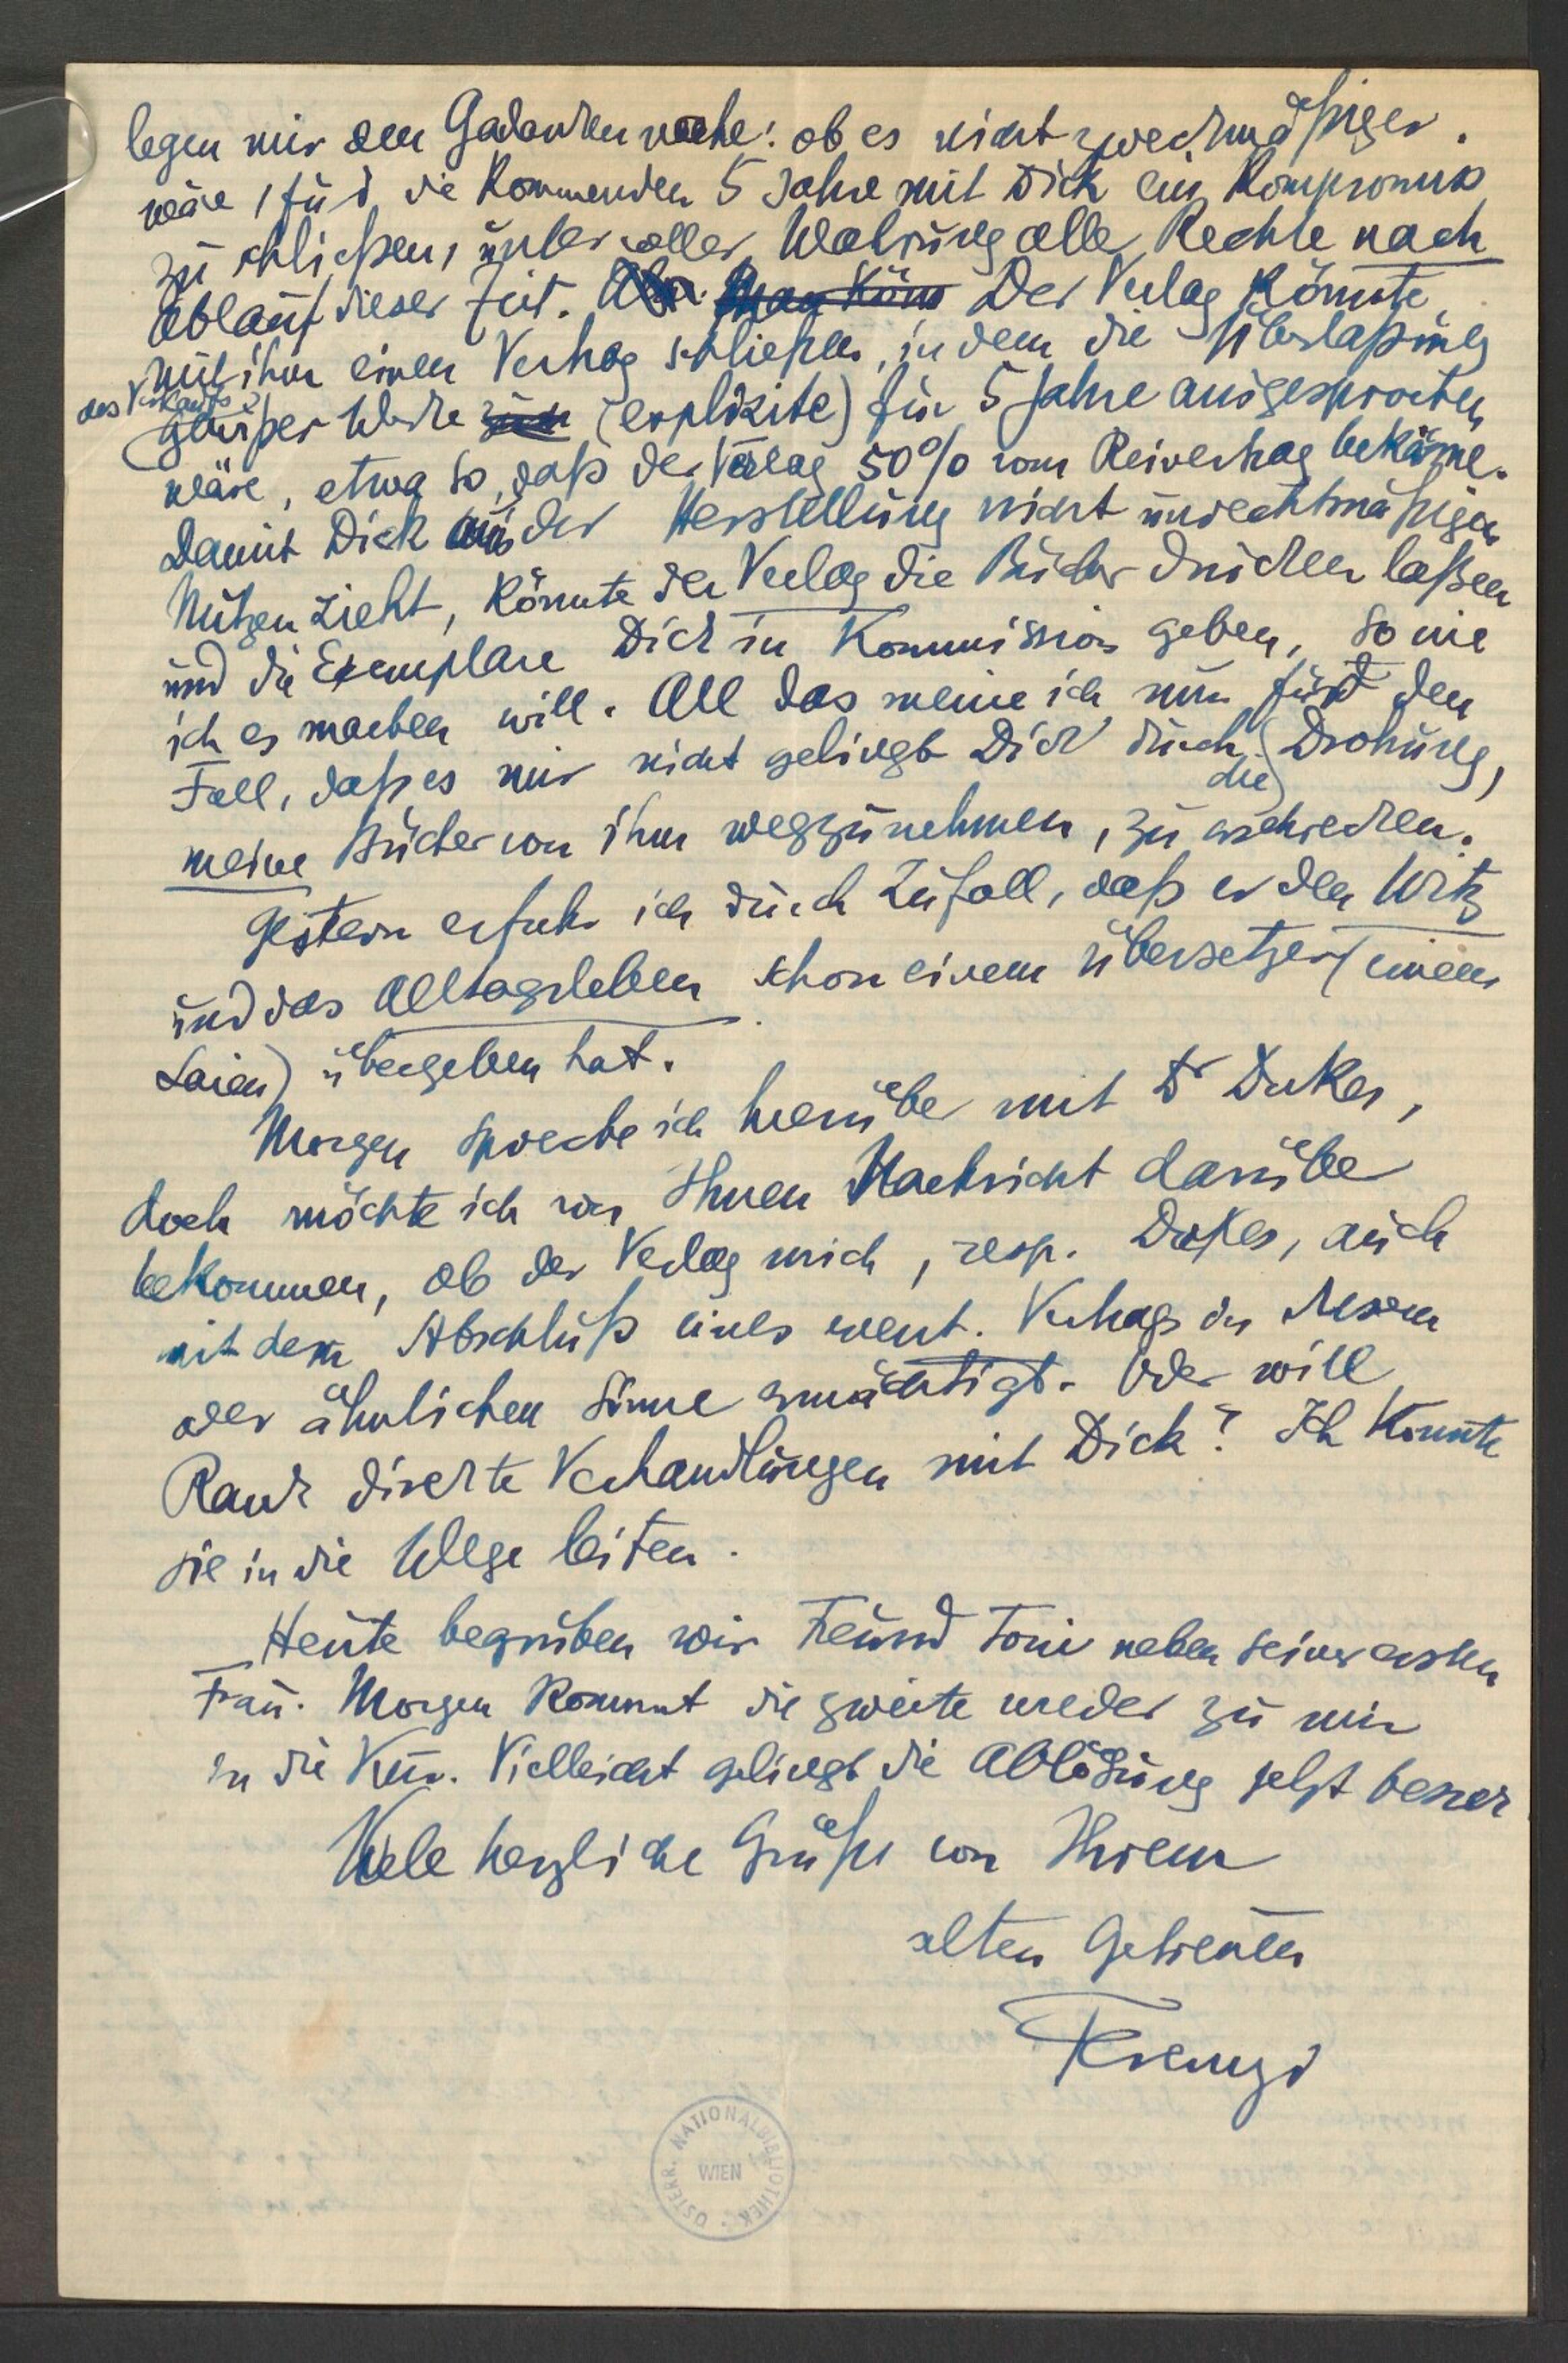 legen mir den Gedanken nahe: ob es nicht zweckmäßiger
wäre, für die kommenden 5 Jahre mit Dick ein Kompromiss
zu schließen, unter voller Wahrung aller Rechte nach
Ablauf dieser Zeit. Aber Man könn Der Verlag könnte
mit ihm einen Vertrag schließen, in dem die Überlaßung
des Verkaufs
gewißer Werke zum (explizite) für 5 Jahre ausgesprochen
wäre, etwa so, daß der Verlag 50% vom Reinertrag bekäme.
Damit Dick aus der Herstellung nicht unrechtmäßigen
Nutzen zieht, könnte der Verlag die Bücher drucken laßen
und die Exemplare Dick in Kommission geben, so wie
ich es machen will. All das meine ich nur für den
Fall, daß es mir nicht gelingt Dick durch die Drohung,
meine Bücher von ihm wegzunehmen, zu erschrecken.
Gestern erfuhr ich durch Zufall, daß er den Witz
und das Alltagsleben schon einem Übersetzer (einem
Laien) übergeben hat.
Morgen spreche ich hierüber mit Dr Dukes,
doch möchte ich von Ihnen Nachricht darüber
bekommen, ob der Verlag mich, resp. Dukes, auch
mit dem Abschluß eines event. Vertrags in diesem
oder ähnlichen Sinne ermächtigt. Oder will
Rank direkte Verhandlungen mit Dick? Ich könnte
sie in die Wege leiten.
Heute begruben wir Freund Toni neben seiner ersten
Frau. Morgen kommt die zweite wieder zu mir
in die Kur. Vielleicht gelingt die Ablösung jetzt besser
Viele herzliche Grüße von Ihrem
alten Getreuen
Ferenczi
ÖSTERR. NATIONALBIBLIOTHEK
WIEN